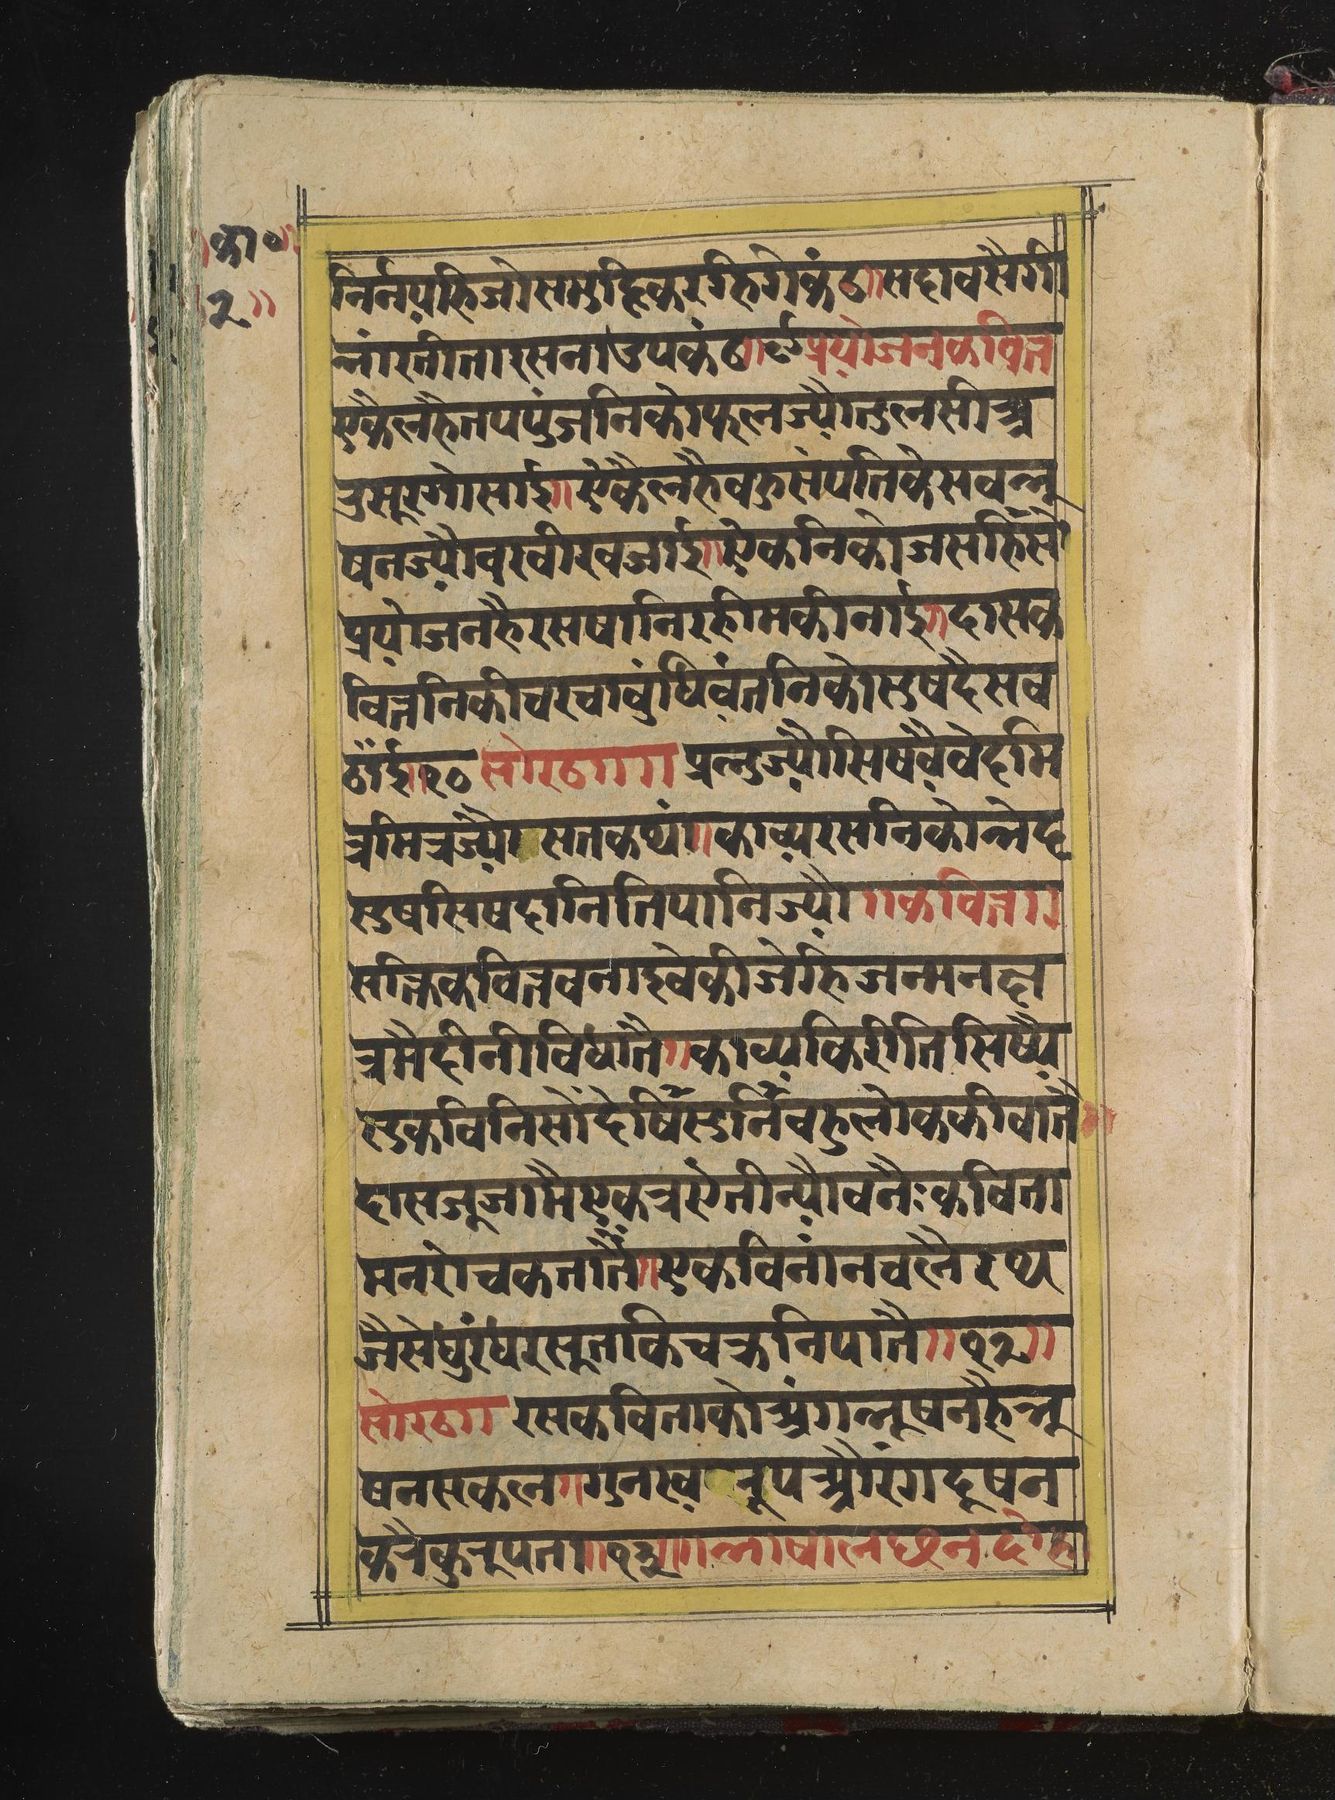 ॥का०॥
२॥
निर्नयहिजोसमुझिकरगहिगेकंठ॥सदावसैगी
भारतीतारसनाउपकंठ॥९प्रयोजनकवित्त
एकैलहैतपपुंजनिकोफलज्यौतुलसीअ
रुसूरगोसाई॥ऐकैलहैवहुसंपतिकेसवभू
षनज्यौवरवीरवजाई॥ऐकनिकोजसहिसो
प्रयोजनहैरसषानिरहीमकीनाई॥दासक
वित्तनिकीचरचावुंधिवंतनिकोसुषदैसव
ठांई॥१०सोरठा॥॥प्रभुज्यौसिषवैवेदमि
त्रमित्रज्यौ सतकथां॥काव्यरसनिकोभेद
सुषसिषदानितियानिज्यौ॥कवित्त॥
सक्तिकवित्तवनाइवेकीजेहिजन्मनछ
त्रमैदीनीविधातै॥काव्यकिरीतिसिषैय
सुकविनिसोंदेषिसुनिंवहुलोककीवातै॥
दासजूजामैएकत्रऐतीन्यौवनैःकविता
मनरोचकतातै॥एकविनांनचलैरथ
जैसेधुरंधरसूतकिचक्रनिपातै॥१२॥
सोरठा॥रसकविताकोअंगभूषनहैभू
षनसकल॥गुनस्व रूपऔरंगदूषन
करैकुरूपता॥१३॥॥भाषालछनदोहा